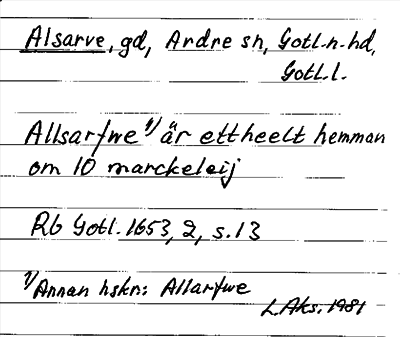 Alsarve, gd, Ardre sh, Gotl.n.hd,
Gotl.l.
Allsarfwe 1) är ett heelt hemman
om 10 marckeleij
Rb Gotl. 1653, 2, s. 13
1) Annan hskr: Allarfwe
L. Aks. 1981